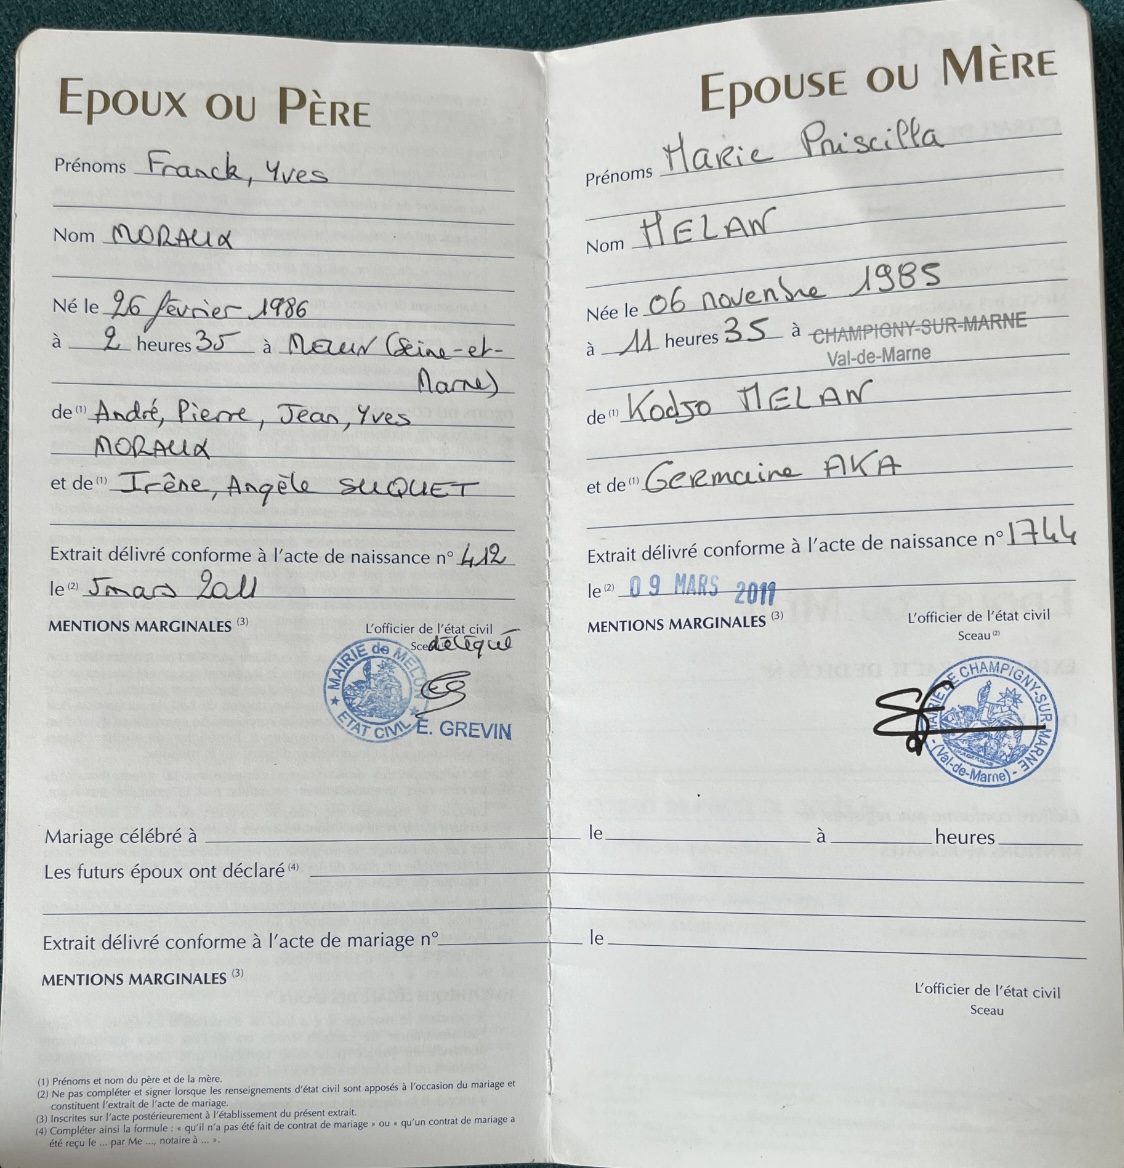 EPOUX OU PÈRE
Prénoms Franck, Yves
Nom MORAUX
Né le 26 février 1986
à 2 heures 35 à MELUN (Seine-et-
Marne)
de (1) André, Pierre, Jean, Yves
MORAUX
et de (1) Irène, Angèle SUQUET
Extrait délivré conforme à l'acte de naissance n° 412
le (2) 5 mars 2011
MENTIONS MARGINALES (3)
L'officier de l'état civil
délégué
MAIRIE de MELUN
ETAT CIVIL
E. GREVIN
EPOUSE OU MÈRE
Prénoms Marie Priscilla
Nom MELAN
Née le 06 novembre 1985
à 11 heures 35 à CHAMPIGNY-SUR-MARNE
Val-de-Marne
de (1) Kodjo MELAN
et de (1) Germaine AKA
Extrait délivré conforme à l'acte de naissance n° 1744
le (2) 09 MARS 2011
MENTIONS MARGINALES (3)
L'officier de l'état civil
Sceau (2)
MAIRIE DE CHAMPIGNY-SUR-MARNE
(Val-de-Marne)
Mariage célébré à le à heures
Les futurs époux ont déclaré (4)
Extrait délivré conforme à l'acte de mariage n° le
MENTIONS MARGINALES (3)
L'officier de l'état civil
Sceau
(1) Prénoms et nom du père et de la mère.
(2) Ne pas compléter et signer lorsque les renseignements d'état civil sont apposés à l'occasion du mariage et
constituent l'extrait de l'acte de mariage.
(3) Inscrites sur l'acte postérieurement à l'établissement du présent extrait.
(4) Compléter ainsi la formule : « qu'il n'a pas été fait de contrat de mariage » ou « qu'un contrat de mariage a
été reçu le ... par Me ..., notaire à ... ».